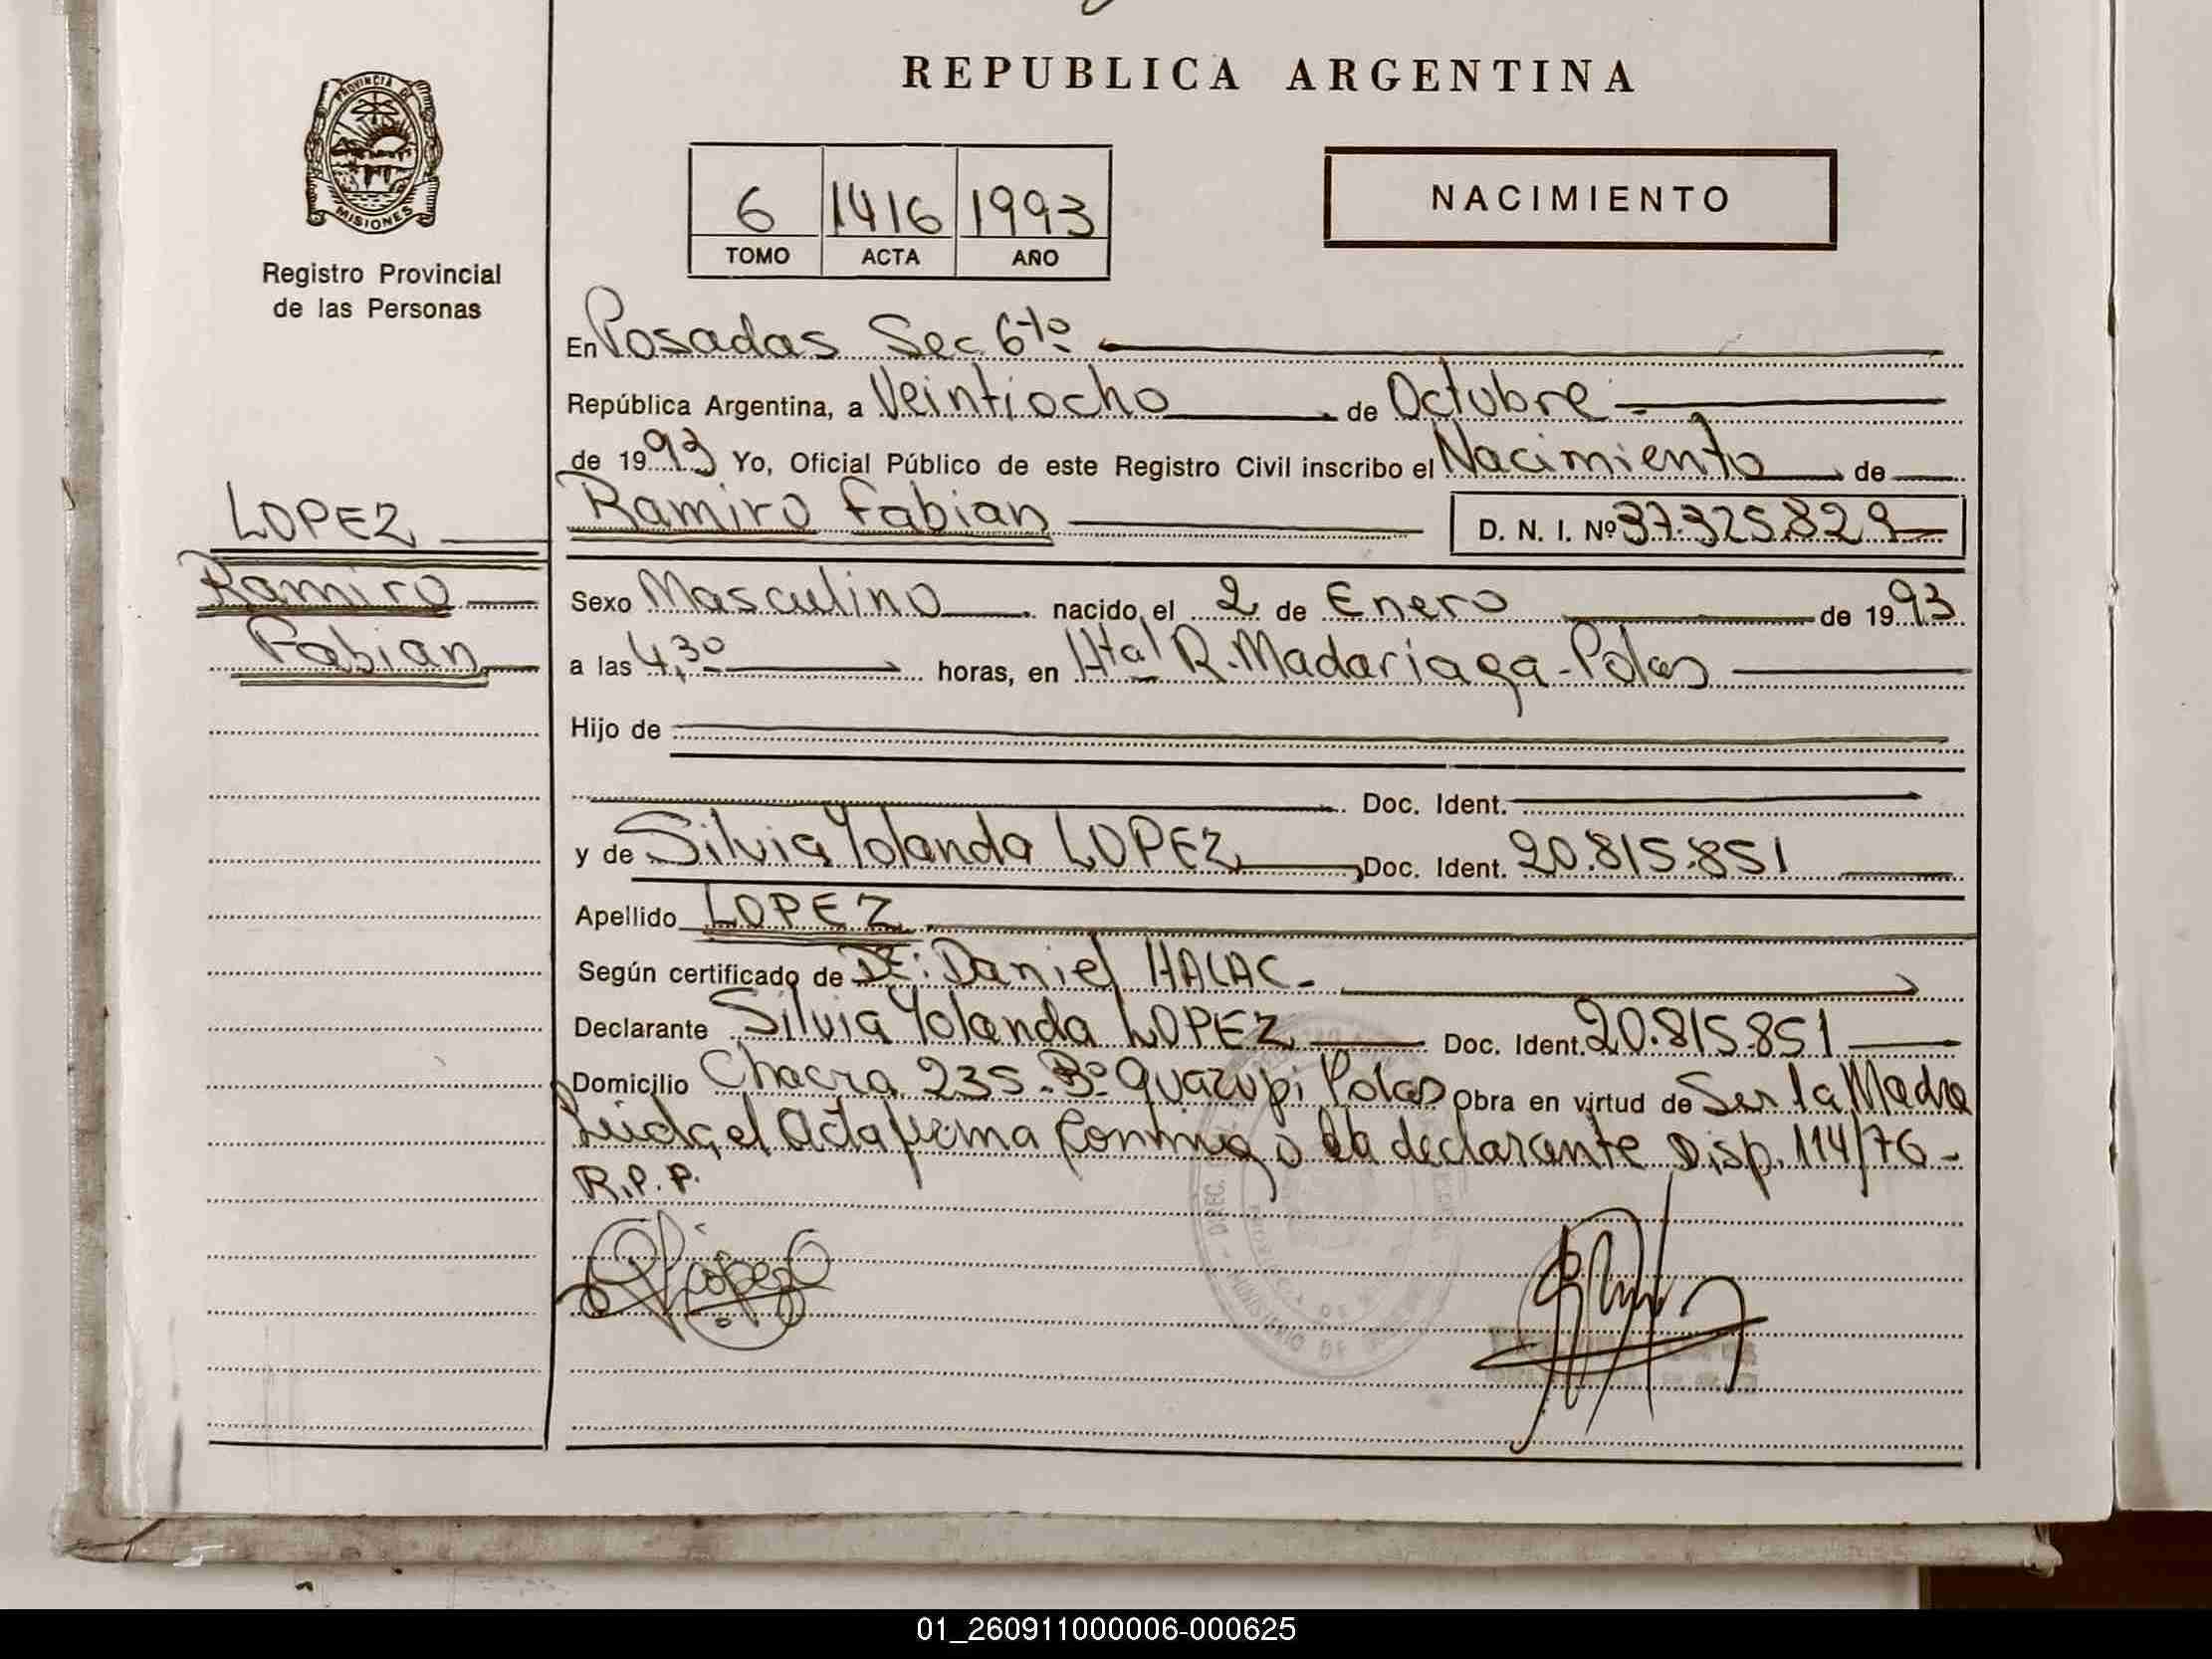 REPUBLICA ARGENTINA
PROVINCIA DE
MISIONES
Registro Provincial
de las Personas
6 1416 1993
TOMO ACTA AÑO
NACIMIENTO
En Posadas Sec. 6ta
República Argentina, a Veintiocho de Octubre
de 1993 Yo, Oficial Público de este Registro Civil inscribo el Nacimiento de
LOPEZ
Ramiro
Fabian
Ramiro Fabian D. N. I. Nº 37.325.829
Sexo Masculino nacido el 2 de Enero de 1993
a las 4,30 horas, en Htal R. Madariaga - Pdas
Hijo de
Doc. Ident.
y de Silvia Yolanda LOPEZ Doc. Ident. 20.815.851
Apellido LOPEZ
Según certificado de Dr: Daniel HALAC.-
Declarante Silvia Yolanda LOPEZ Doc. Ident. 20.815.851
Domicilio Chacra 235 - Bº Guazupi Pdas Obra en virtud de Ser la Madre
Leida el Acta firma conmigo la declarante Disp. 114/76 -
R.P.P.
López
DIREC.
MINISTERIO DE
01_260911000006-000625